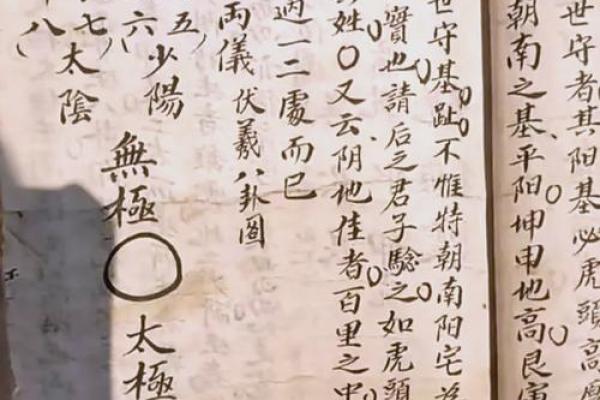 世守者其阳基必虎頭高
朝南之基平阳坤申地高艮寅
世守基趾不惟特朝南阳宅
實也請后之君子騐之如虎頭
姓又云阴地佳者百里之中
過一二處而已
两儀伏羲八卦圖
五
六少陽
七
八太陰
無極
太極